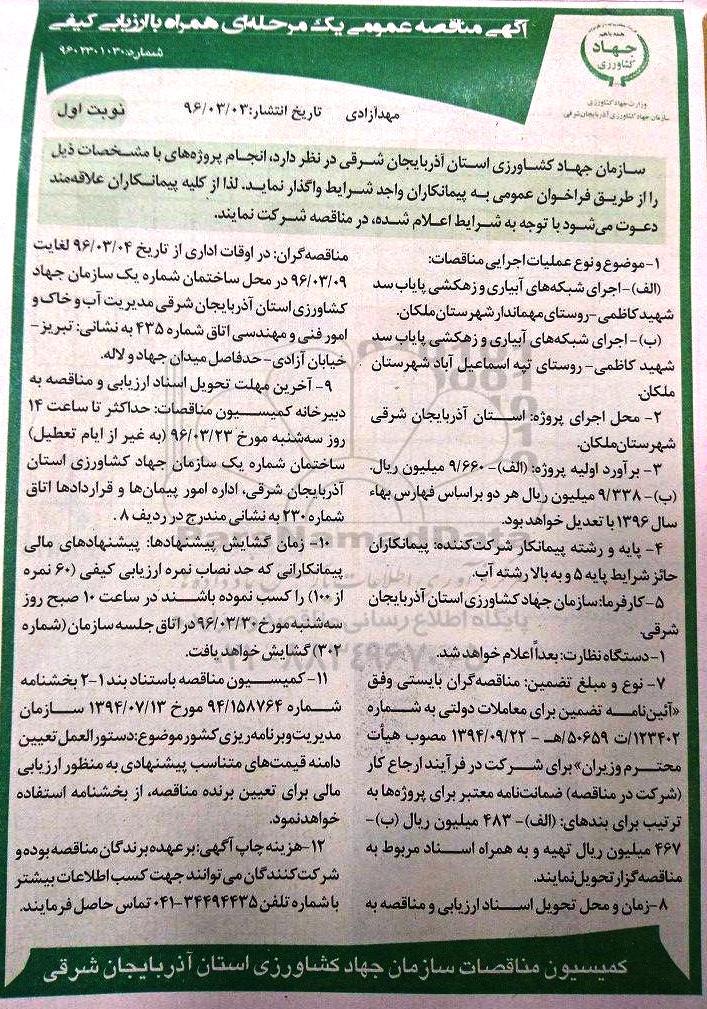 آگهی مناقصه عمومی یک مرحله‌ای همراه با ارزیابی کیفی
شماره: ۹۶۰۲۳۰۱۰۳۰
جهاد
کشاورزی
وزارت جهاد کشاورزی
سازمان جهاد کشاورزی آذربایجان شرقی
مهدآزادی تاریخ انتشار: ۹۶/۰۳/۰۳
نوبت اول
سازمان جهاد کشاورزی استان آذربایجان شرقی در نظر دارد، انجام پروژه‌های با مشخصات ذیل
را از طریق فراخوان عمومی به پیمانکاران واجد شرایط واگذار نماید. لذا از کلیه پیمانکاران علاقه‌مند
دعوت می‌شود با توجه به شرایط اعلام شده، در مناقصه شرکت نمایند.
۱- موضوع و نوع عملیات اجرایی مناقصات:
(الف)- اجرای شبکه‌های آبیاری و زهکشی پایاب سد
شهید کاظمی- روستای مهماندار شهرستان ملکان.
(ب)- اجرای شبکه‌های آبیاری و زهکشی پایاب سد
شهید کاظمی- روستای تپه اسماعیل آباد شهرستان
ملکان.
۲- محل اجرای پروژه: استان آذربایجان شرقی
شهرستان ملکان.
۳- برآورد اولیه پروژه: (الف)- ۹/۶۶۰ میلیون ریال.
(ب)- ۹/۳۳۸ میلیون ریال هر دو براساس فهارس بهاء
سال ۱۳۹۶ با تعدیل خواهد بود.
۴- پایه و رشته پیمانکار شرکت‌کننده: پیمانکاران
حائز شرایط پایه ۵ و به بالا رشته آب.
۵- کارفرما: سازمان جهاد کشاورزی استان آذربایجان
شرقی.
۱- دستگاه نظارت: بعداً اعلام خواهد شد.
۷- نوع و مبلغ تضمین: مناقصه‌گران بایستی وفق
«آئین‌نامه تضمین برای معاملات دولتی به شماره
۱۲۳۴۰۲/ت ۵۰۶۵۹/هـ - ۱۳۹۴/۰۹/۲۲ مصوب هیأت
محترم وزیران» برای شرکت در فرآیند ارجاع کار
(شرکت در مناقصه) ضمانت‌نامه معتبر برای پروژه‌ها به
ترتیب برای بندهای: (الف)- ۴۸۳ میلیون ریال (ب)-
۴۶۷ میلیون ریال تهیه و به همراه اسناد مربوط به
مناقصه‌گزار تحویل نمایند.
۸- زمان و محل تحویل اسناد ارزیابی و مناقصه به
مناقصه‌گران: در اوقات اداری از تاریخ ۹۶/۰۳/۰۴ لغایت
۹۶/۰۳/۰۹ در محل ساختمان شماره یک سازمان جهاد
کشاورزی استان آذربایجان شرقی مدیریت آب و خاک و
امور فنی و مهندسی اتاق شماره ۴۳۵ به نشانی: تبریز-
خیابان آزادی- حدفاصل میدان جهاد و لاله.
۹- آخرین مهلت تحویل اسناد ارزیابی و مناقصه به
دبیرخانه کمیسیون مناقصات: حداکثر تا ساعت ۱۴
روز سه‌شنبه مورخ ۹۶/۰۳/۲۳ (به غیر از ایام تعطیل)
ساختمان شماره یک سازمان جهاد کشاورزی استان
آذربایجان شرقی، اداره امور پیمان‌ها و قراردادها اتاق
شماره ۲۳۰ به نشانی مندرج در ردیف ۸ .
۱۰- زمان گشایش پیشنهادها: پیشنهادهای مالی
پیمانکارانی که حد نصاب نمره ارزیابی کیفی (۶۰ نمره
از ۱۰۰) را کسب نموده باشند در ساعت ۱۰ صبح روز
سه‌شنبه مورخ ۹۶/۰۳/۳۰ در اتاق جلسه سازمان (شماره
۳۰۲) گشایش خواهد یافت.
۱۱- کمیسیون مناقصه باستناد بند ۱-۲ بخشنامه
شماره ۹۴/۱۵۸۷۶۴ مورخ ۱۳۹۴/۰۷/۱۳ سازمان
مدیریت و برنامه‌ریزی کشور موضوع: دستورالعمل تعیین
دامنه قیمت‌های متناسب پیشنهادی به منظور ارزیابی
مالی برای تعیین برنده مناقصه، از بخشنامه استفاده
خواهد نمود.
۱۲- هزینه چاپ آگهی: بر عهده برندگان مناقصه بوده و
شرکت‌کنندگان می‌توانند جهت کسب اطلاعات بیشتر
با شماره تلفن ۳۴۴۹۴۴۳۵-۰۴۱ تماس حاصل فرمایند.
کمیسیون مناقصات سازمان جهاد کشاورزی استان آذربایجان شرقی